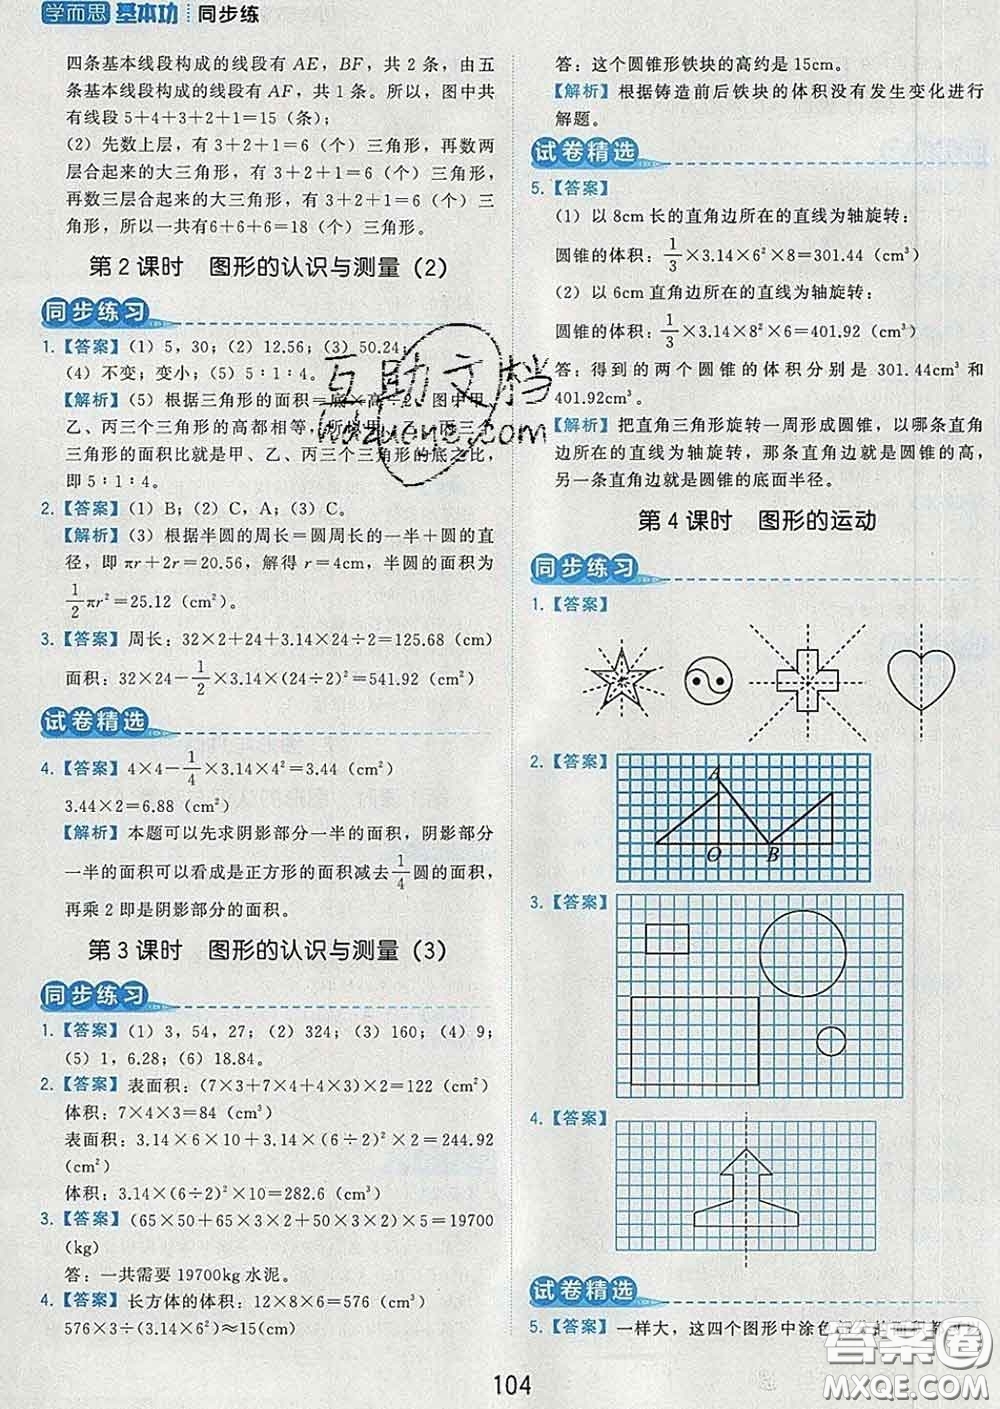 学而思 基本功 同步练
四条基本线段构成的线段有 AE，BF，共 2 条，由五
条基本线段构成的线段有 AF，共 1 条。所以，图中共
有线段 5＋4＋3＋2＋1＝15（条）；
（2）先数上层，有 3＋2＋1＝6（个）三角形，再数两
层合起来的大三角形，有 3＋2＋1＝6（个）三角形，
再数三层合起来的大三角形，有 3＋2＋1＝6（个）三
角形，所以一共有6＋6＋6＝18（个）三角形。
第 2 课时 图形的认识与测量（2）
同步练习
1.【答案】（1）5，30；（2）12.56；（3）50.24；
（4）不变；变小；（5）5∶1∶4。
【解析】（5）根据三角形的面积＝底×高÷2，图中甲、
乙、丙三个三角形的高都相等，所以甲、乙、丙三个
三角形的面积比就是甲、乙、丙三个三角形的底之比，
即 5∶1∶4。
2.【答案】（1）B；（2）C，A；（3）C。
【解析】（3）根据半圆的周长＝圆周长的一半＋圆的直
径，即 πr＋2r＝20.56，解得 r＝4cm，半圆的面积为
1/2 πr²＝25.12（cm²）。
3.【答案】周长：32×2＋24＋3.14×24÷2＝125.68（cm）
面积：32×24－1/2×3.14×(24÷2)²＝541.92（cm²）
试卷精选
4.【答案】4×4－1/4×3.14×4²＝3.44（cm²）
3.44×2＝6.88（cm²）
【解析】本题可以先求阴影部分一半的面积，阴影部分
一半的面积可以看成是正方形的面积减去1/4圆的面积，
再乘 2 即是阴影部分的面积。
第 3 课时 图形的认识与测量（3）
同步练习
1.【答案】（1）3，54，27；（2）324；（3）160；（4）9；
（5）1，6.28；（6）18.84。
2.【答案】表面积：(7×3＋7×4＋4×3)×2＝122（cm²）
体积：7×4×3＝84（cm³）
表面积：3.14×6×10＋3.14×(6÷2)²×2＝244.92
（cm²）
体积：3.14×(6÷2)²×10＝282.6（cm³）
3.【答案】(65×50＋65×3×2＋50×3×2)×5＝19700
（kg）
答：一共需要 19700kg 水泥。
4.【答案】长方体的体积：12×8×6＝576（cm³）
576×3÷(3.14×6²)≈15(cm)
答：这个圆锥形铁块的高约是 15cm。
【解析】根据铸造前后铁块的体积没有发生变化进行
解题。
试卷精选
5.【答案】
（1）以 8cm 长的直角边所在的直线为轴旋转：
圆锥的体积：1/3×3.14×6²×8＝301.44（cm³）
（2）以 6cm 直角边所在的直线为轴旋转：
圆锥的体积：1/3×3.14×8²×6＝401.92（cm³）
答：得到的两个圆锥的体积分别是 301.44cm³ 和
401.92cm³。
【解析】把直角三角形旋转一周形成圆锥，以哪条直角
边所在的直线为轴旋转，那条直角边就是圆锥的高，
另一条直角边就是圆锥的底面半径。
第 4 课时 图形的运动
同步练习
1.【答案】
2.【答案】
A
O
B
3.【答案】
4.【答案】
试卷精选
5.【答案】一样大，这四个图形中涂色
104
互助文档
hdzuone.com
答案圈
MXQE.COM